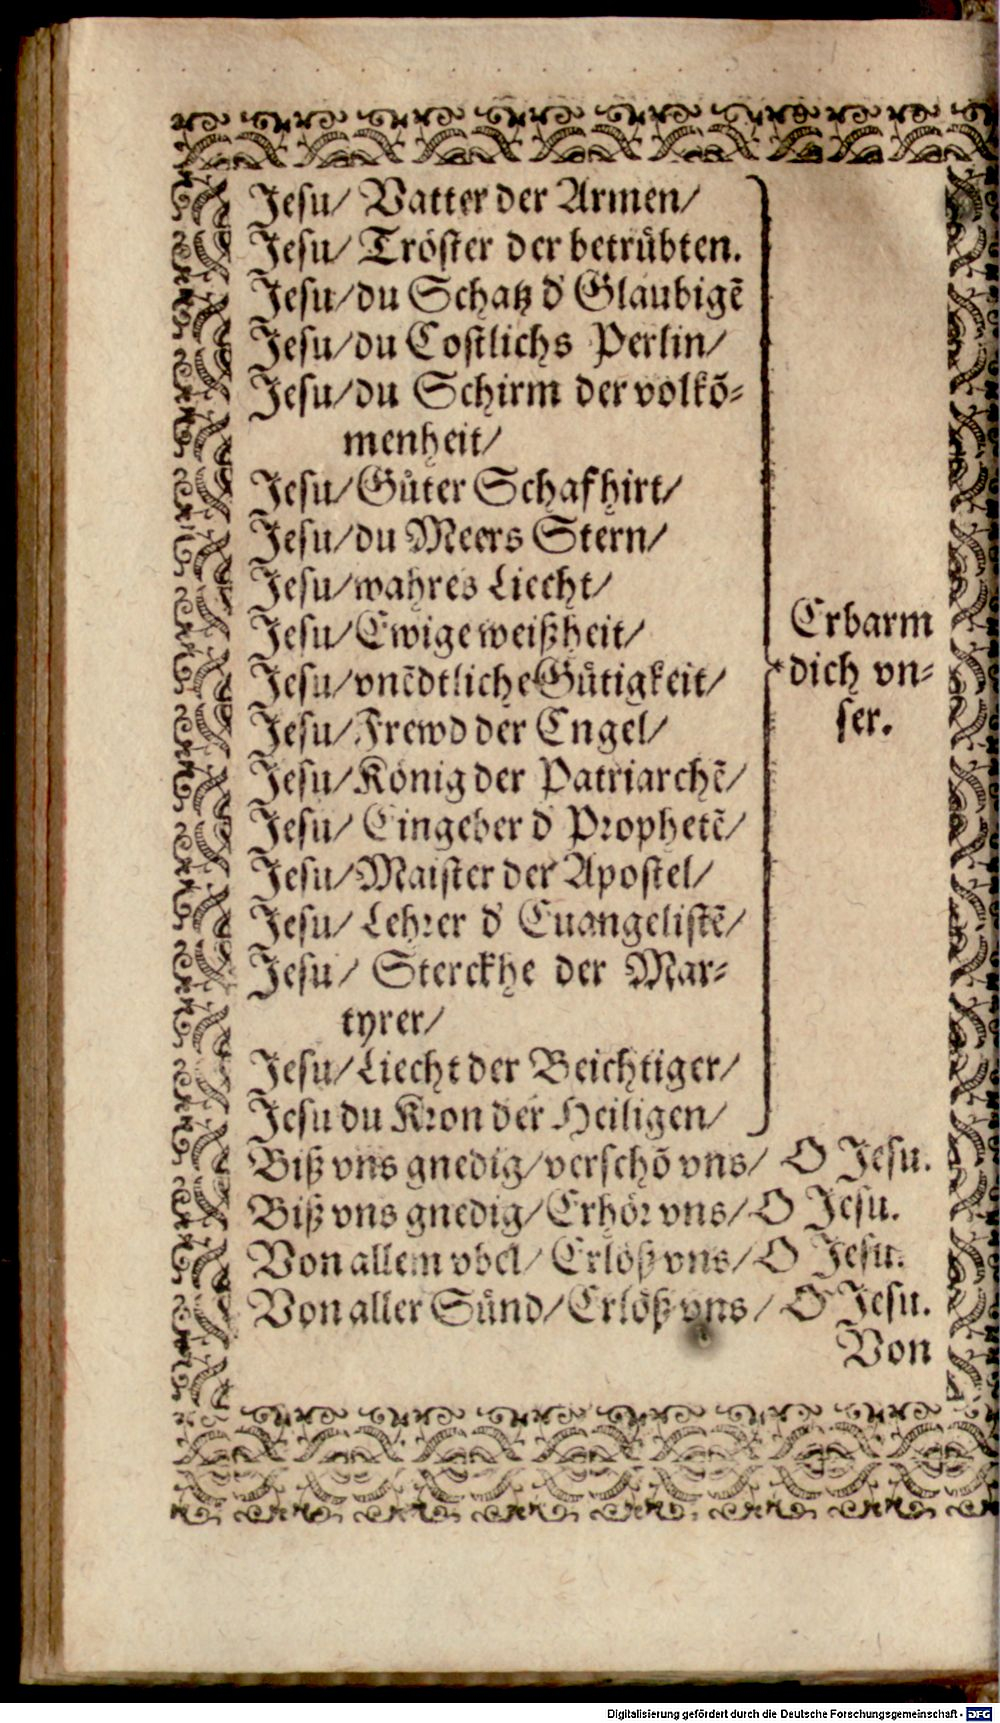 Jesu/ Vatter der Armen/
Jesu/ Tröster der betrübten.
Jesu/ du Schatz d' Glaubigẽ
Jesu/ du Costlichs Perlin/
Jesu/ du Schirm der volkõ-
menheit/
Jesu/ Gůter Schafhirt/
Jesu/ du Meers Stern/
Jesu/ wahres Liecht/
Jesu/ Ewige weißheit/
Jesu/ vnẽdtliche Gůtigkeit/
Jesu/ Frewd der Engel/
Jesu/ König der Patriarchẽ/
Jesu/ Eingeber d' Prophetẽ/
Jesu/ Maister der Apostel/
Jesu/ Lehrer d' Euangelistẽ/
Jesu/ Sterckhe der Mar-
tyrer/
Jesu/ Liecht der Beichtiger/
Jesu du Kron der Heiligen/
Erbarm
dich vn-
ser.
Biß vns gnedig/ verschõ vns/ O Jesu.
Biß vns gnedig/ Erhör vns/ O Jesu.
Von allem vbel/ Erlöß vns/ O Jesu.
Von aller Sünd/ Erlöß vns/ O Jesu.
Von
Digitalisierung gefördert durch die Deutsche Forschungsgemeinschaft - DFG